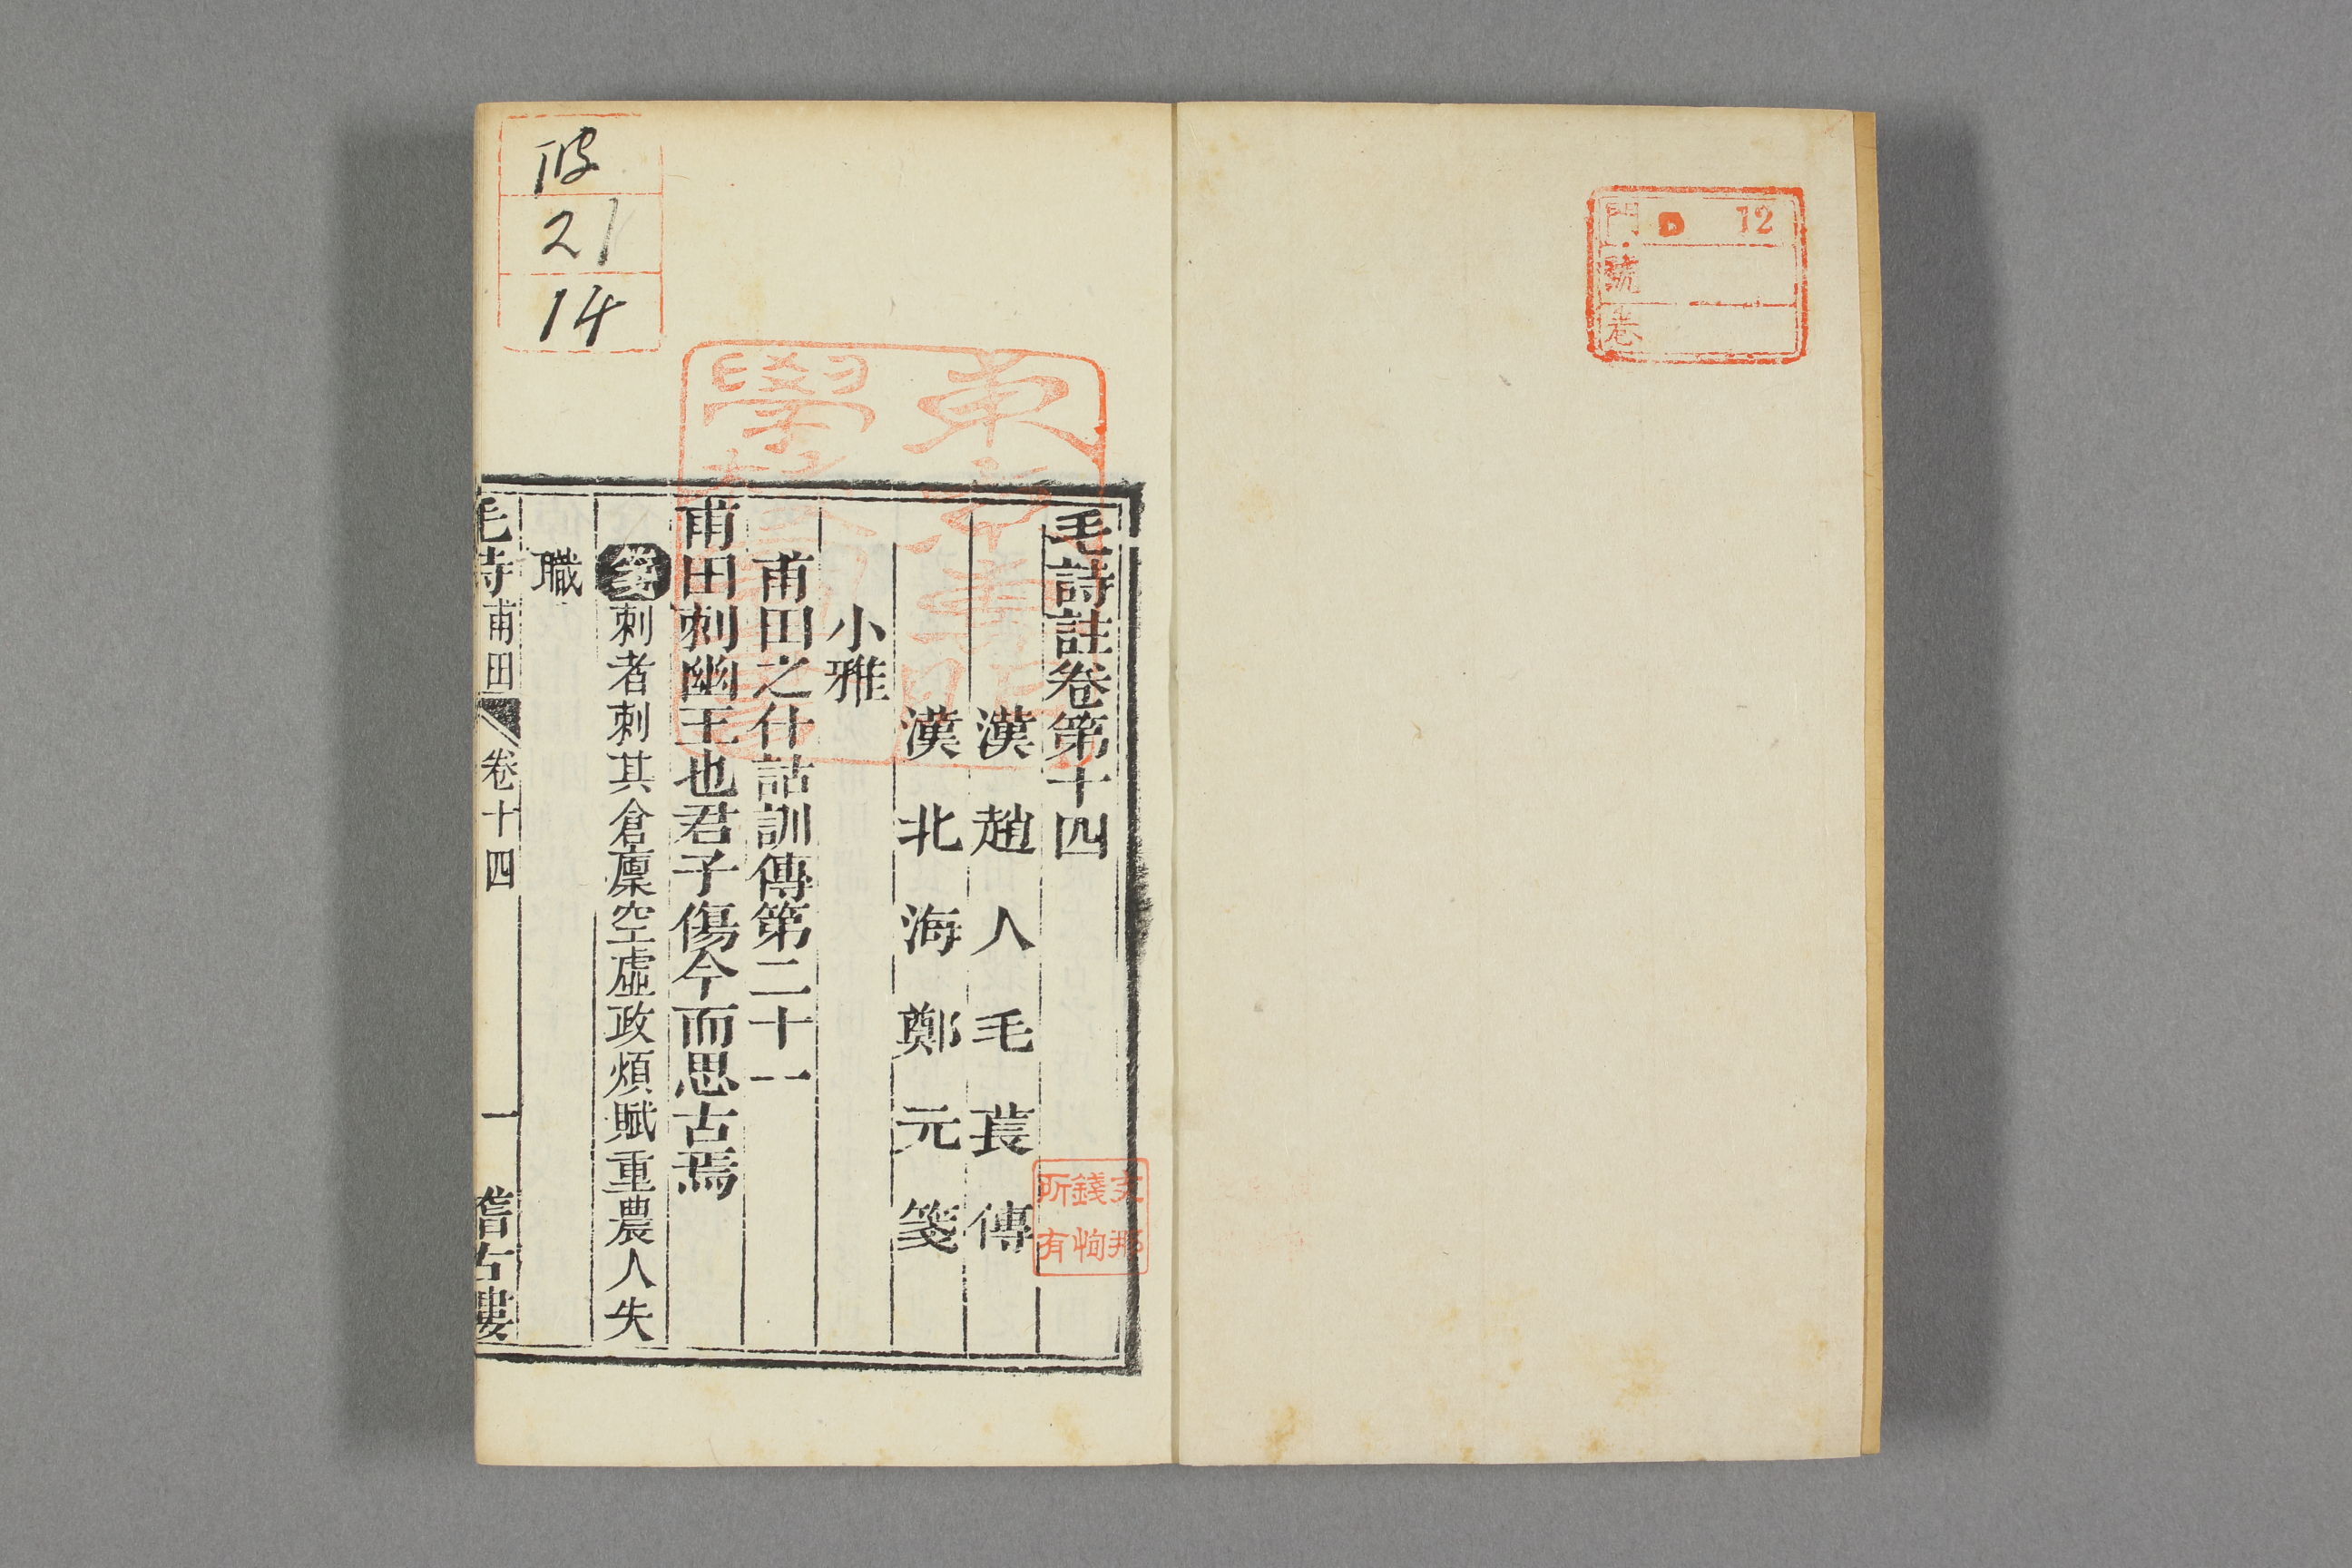 門 D 12
號
卷
毛詩註卷第十四
漢趙人毛萇傳
漢北海鄭元箋
小雅
甫田之什詁訓傳第二十一
甫田刺幽王也君子傷今而思古焉
箋刺者刺其倉廩空虛政煩賦重農人失
職
毛詩 甫田 卷十四 一 稽古樓
21
14
文那
錢恂
所有